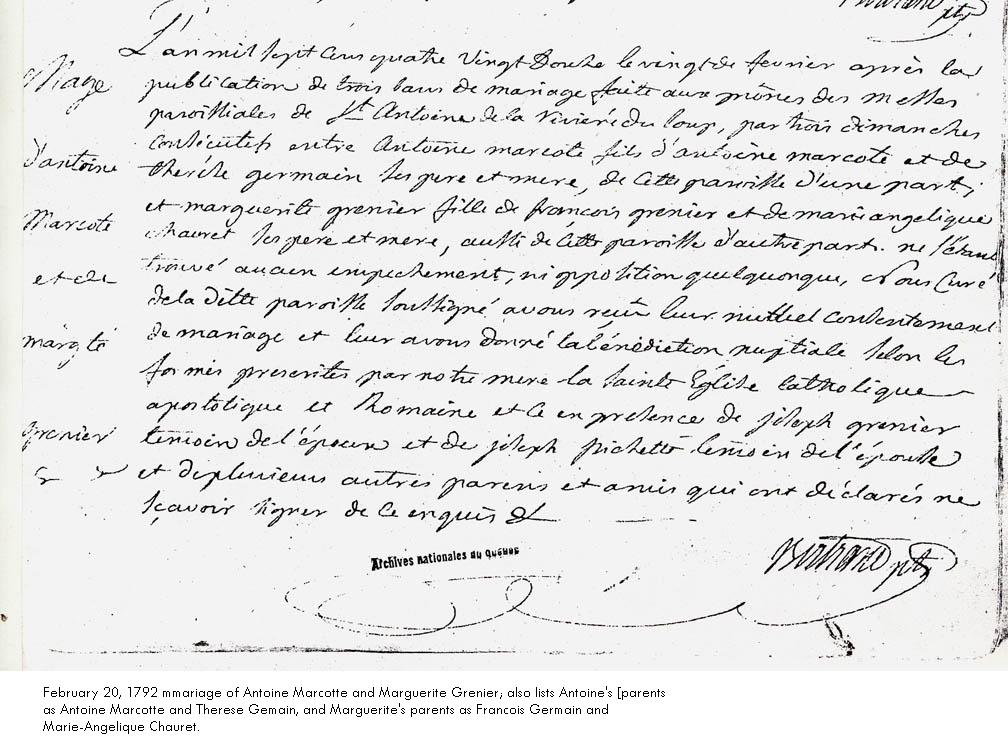 L'an mil sept cens quatre vingt Douze le vingt de fevrier après la
publication de trois bans de mariage faite aux prônes des messes
paroissiales de St Antoine de la riviere du loup, par trois dimanches
consécutifs entre Antoine marcote fils d'antoine marcote et de
therese germain ses pere et mere, de cette paroisse d'une part;
et marguerite grenier fille de françois grenier et de marie angelique
chauret ses pere et mere, aussi de cette paroisse d'autre part. ne s'étant
trouvé aucun empechement, ni opposition quelquonque, Nous Curé
de la ditte paroisse soussigné avons reçu leur mutuel consentement
de mariage et leur avons donné la bénédiction nuptiale selon les
formes prescrites par notre mere la sainte Eglise catholique
apostolique et Romaine et ce en presence de joseph grenier
temoin de l'époux et de joseph pichette temoin de l'épouse
et de plusieurs autres parens et amis qui ont déclarés ne
sçavoir signer de ce enquis &
Mage
d'antoine
Marcote
et de
margte
grenier
Bertrand ptr
Archives nationales du Québec
February 20, 1792 mmariage of Antoine Marcotte and Marguerite Grenier; also lists Antoine's [parents
as Antoine Marcotte and Therese Gemain, and Marguerite's parents as Francois Germain and
Marie-Angelique Chauret.